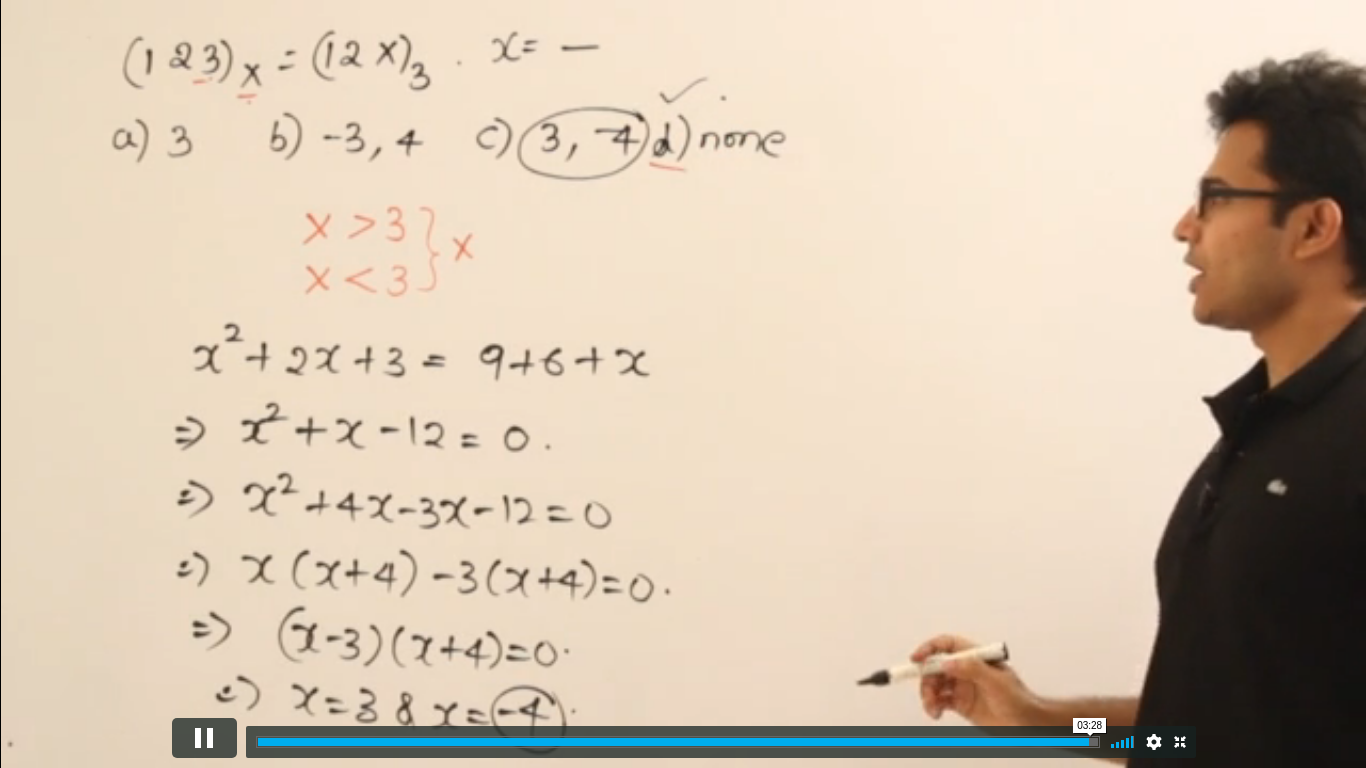 (123)ₓ = (12x)₃ . x = —
a) 3 b) -3, 4 c) 3, -4 d) none
x > 3 } x
x < 3
x² + 2x + 3 = 9 + 6 + x
⇒ x² + x - 12 = 0 .
⇒ x² + 4x - 3x - 12 = 0
⇒ x (x+4) - 3(x+4) = 0 .
⇒ (x-3)(x+4) = 0 .
⇒ x = 3 & x = -4 .
03:28